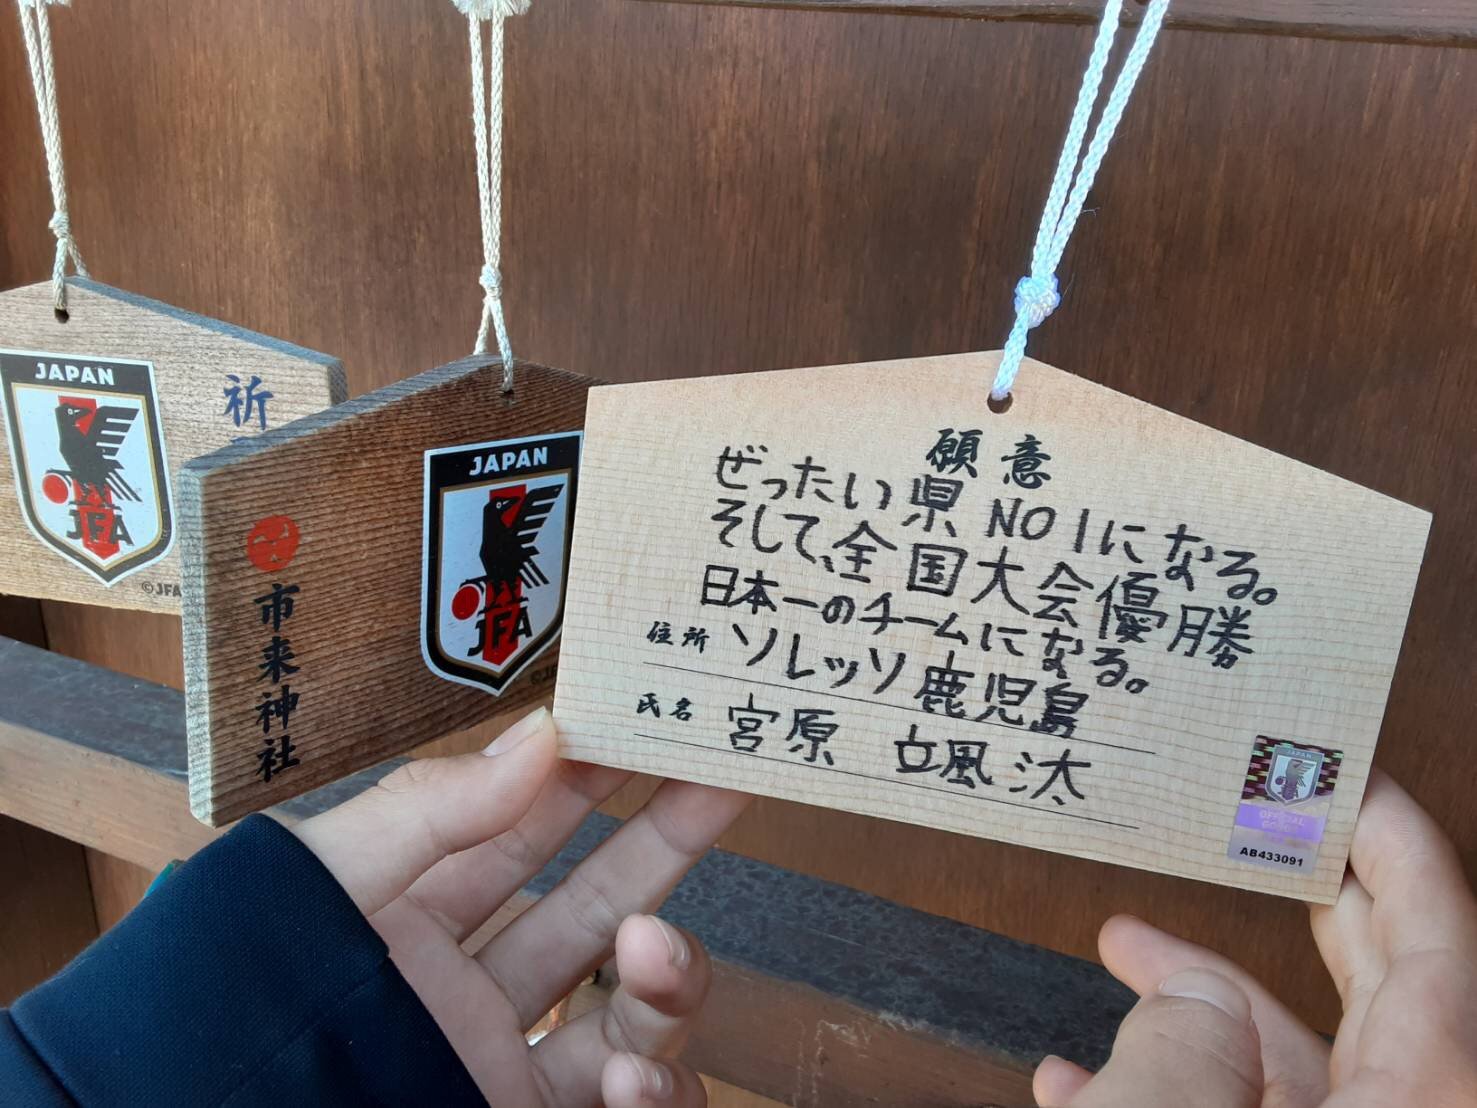 JAPAN
JFA
祈
©JFA
JAPAN
JFA
市来神社
願意
ぜったい県NO1になる。
そして、全国大会優勝
日本一のチームになる。
住所 ソレッソ鹿児島
氏名 宮原 颯汰
JAPAN
OFFICIAL
AB433091